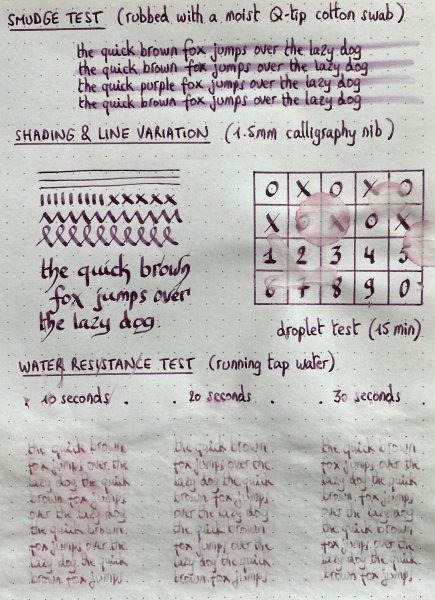 SMUDGE TEST (rubbed with a moist Q-tip cotton swab)
the quick brown fox jumps over the lazy dog
the quick brown fox jumps over the lazy dog
the quick purple fox jumps over the lazy dog
the quick brown fox jumps over the lazy dog
SHADING & LINE VARIATION (1.5mm calligraphy nib)
the quick brown
fox jumps over
the lazy dog.
O X O X O
X O X O X
1 2 3 4 5
6 7 8 9 0
droplet test (15 min)
WATER RESYSTANCE TEST (running tap water)
10 seconds . 20 seconds . 30 seconds
the quick brown
fox jumps over the
lazy dog the quick
brown fox jumps
over the lazy dog
the quick brown
fox jumps over the
lazy dog the quick
brown fox jumps
the quick brown
fox jumps over the
lazy dog the quick
brown fox jumps
over the lazy dog
the quick brown
fox jumps over the
lazy dog the quick
brown fox jumps
the quick brown
fox jumps over the
lazy dog the quick
brown fox jumps
over the lazy dog
the quick brown
fox jumps over the
lazy dog the quick
brown fox jumps